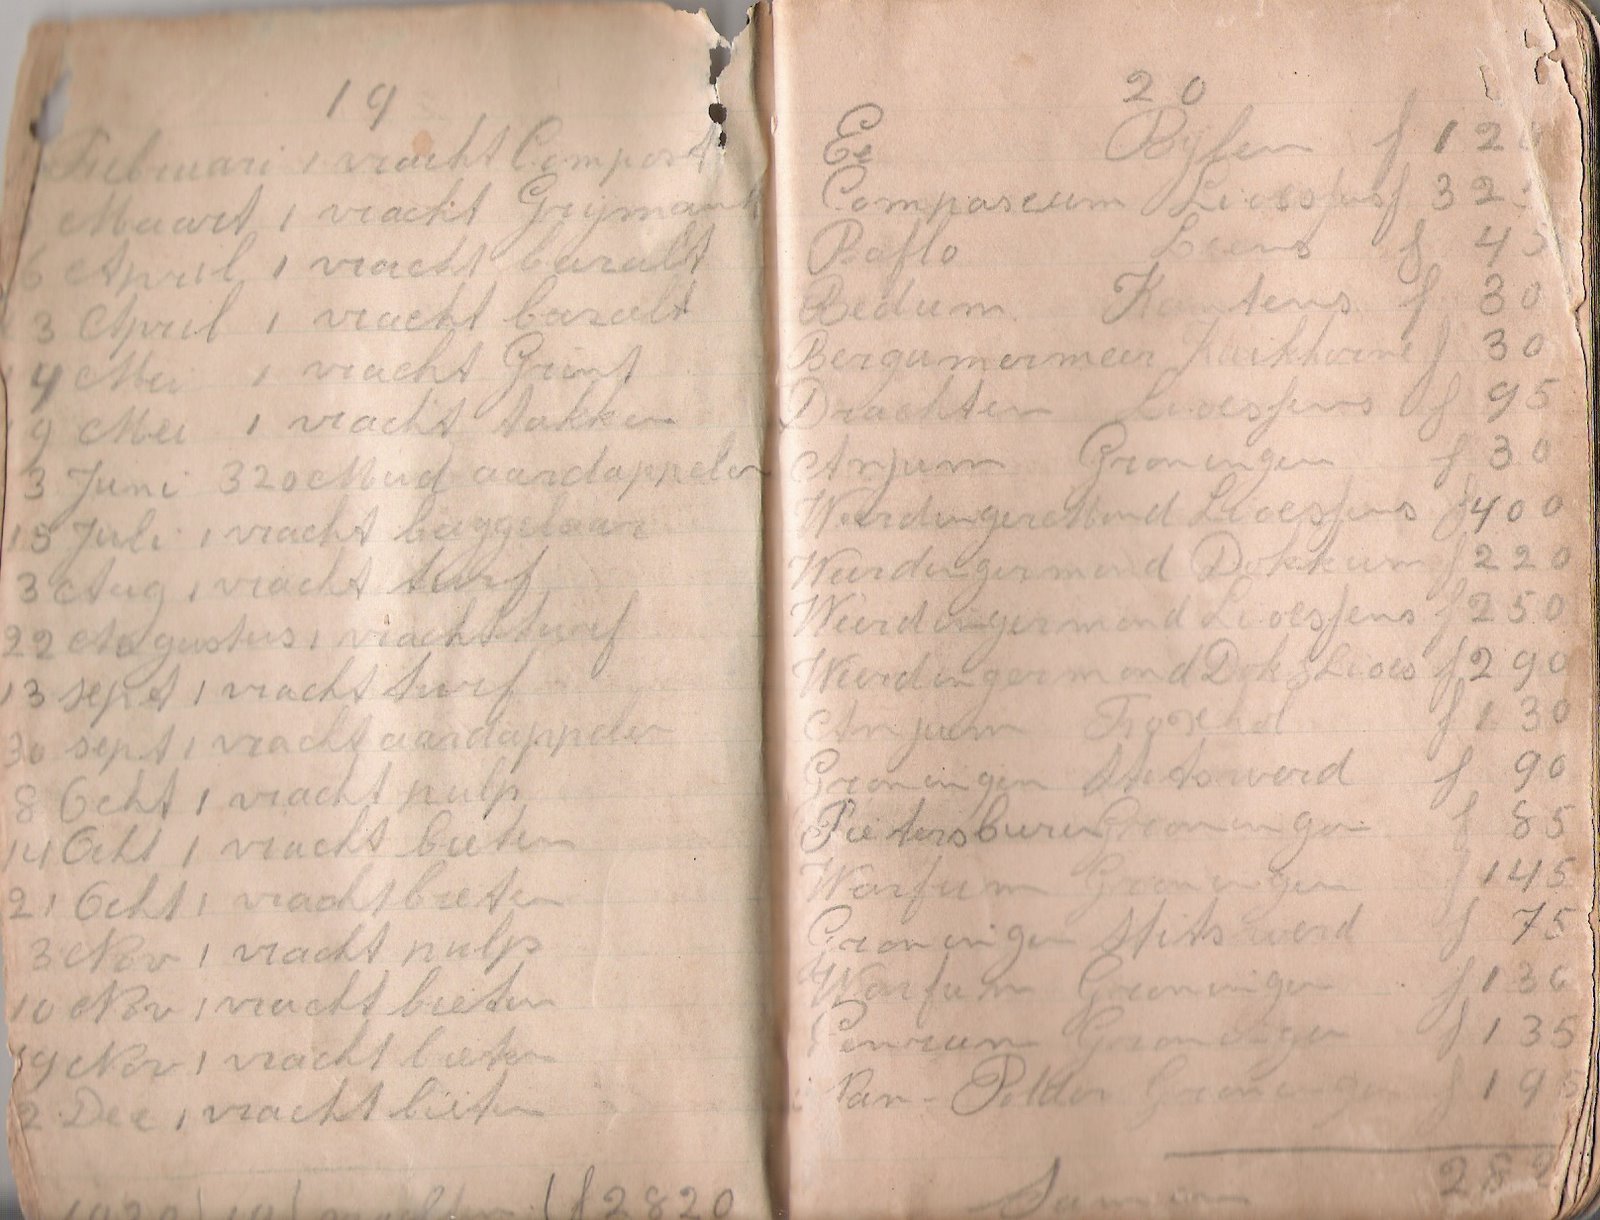 19
Febuari 1 vracht Compost
Maart 1 vracht
6 April 1 vracht bazalt
3 April 1 vracht bazalt
4 Mei 1 vracht Grint
9 Mei 1 vracht takken
3 Juni 320 Mud aardappelen
15 Juli 1 vracht baggelaar
3 Aug 1 vracht turf
22 Augustus 1 vracht turf
13 sept 1 vracht turf
30 sept 1 vracht aardappelen
8 Ocht 1 vracht pulp
14 Ocht 1 vracht bieten
21 Ocht 1 vracht bieten
3 Nov 1 vracht pulp
10 Nov 1 vracht bieten
19 Nov 1 vracht bieten
2 Dec 1 vracht bieten
1920 19 vrachten f 2820
20
Ee f 12
Compascum Lioessens f 32
Baflo Leens f 45
Bedum Kantens f 30
Bergumermeer f 30
Drachten Lioessens f 95
Anjum Groningen f 30
Weerdingermond Lioessens f 400
Weerdingermond Dokkum f 220
Weerdingermond Lioessens f 250
Weerdingermond Dok & Lioes f 290
Anjum f 130
Groningen Stitswerd f 90
Pietersburen Groningen f 85
Warfum Groningen f 145
Groningen Stitswerd f 75
Warfum Groningen f 136
Groningen f 135
Polder Groningen f 195
Samen 282